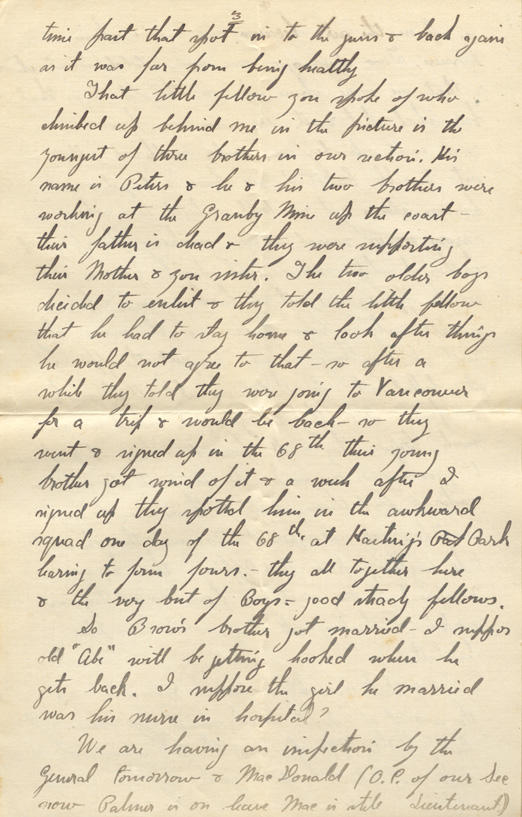 3
time past that spot in to the guns & back again
as it was far from being healthy
That little fellow you spoke of who
climbed up behind me in the picture is the
youngest of three brothers in our section. His
name is Peters & he & his two brothers were
working at the Granby Mine up the coast –
their father is dead & they were supporting
their Mother & you sister. The two older boys
decided to enlist & they told the little fellow
that he had to stay home & look after things
he would not agree to that – so after a
while they told they were going to Vancouver
for a trip & would be back – so they
went & signed up in the 68th their young
brother got wind of it & a week after I
signed up they spotted him in the awkward
squad one day of the 68th at Hastings Park
learing to form fours. – they all together here
& the very best of Boys – good steady fellows.
So Brow's brother got married – I suppos
old "Abe" will be getting hooked when he
gets back. I suppose the girl he married
was his nurse in hospital?
We are having an inspection by the
General tomorrow & MacDonald (O.P. of our Sec
now Palmer is on leave Mac is still Lieutenant)